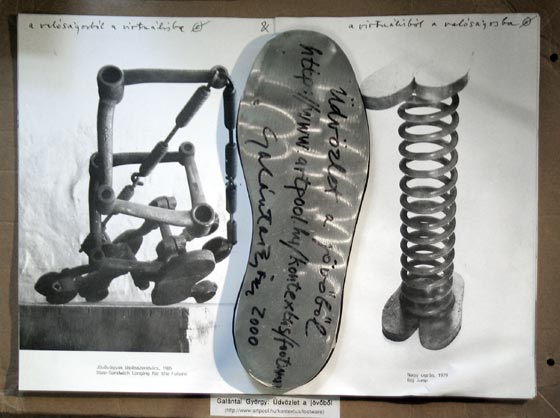 a valóságosból a virtuálisba
&
a virtuálisból a valóságosba
Üdvözlet a jövőből
http://www.artpool.hu/kontextus/footware
Galántai György 2000
Jövővágyas lépésszendvics, 1985
Sole-Sandwich Longing for the Future
Nagy ugrás, 1979
Big Jump
Galántai György: Üdvözlet a jövőből
(http://www.artpool.hu/kontextus/footware)